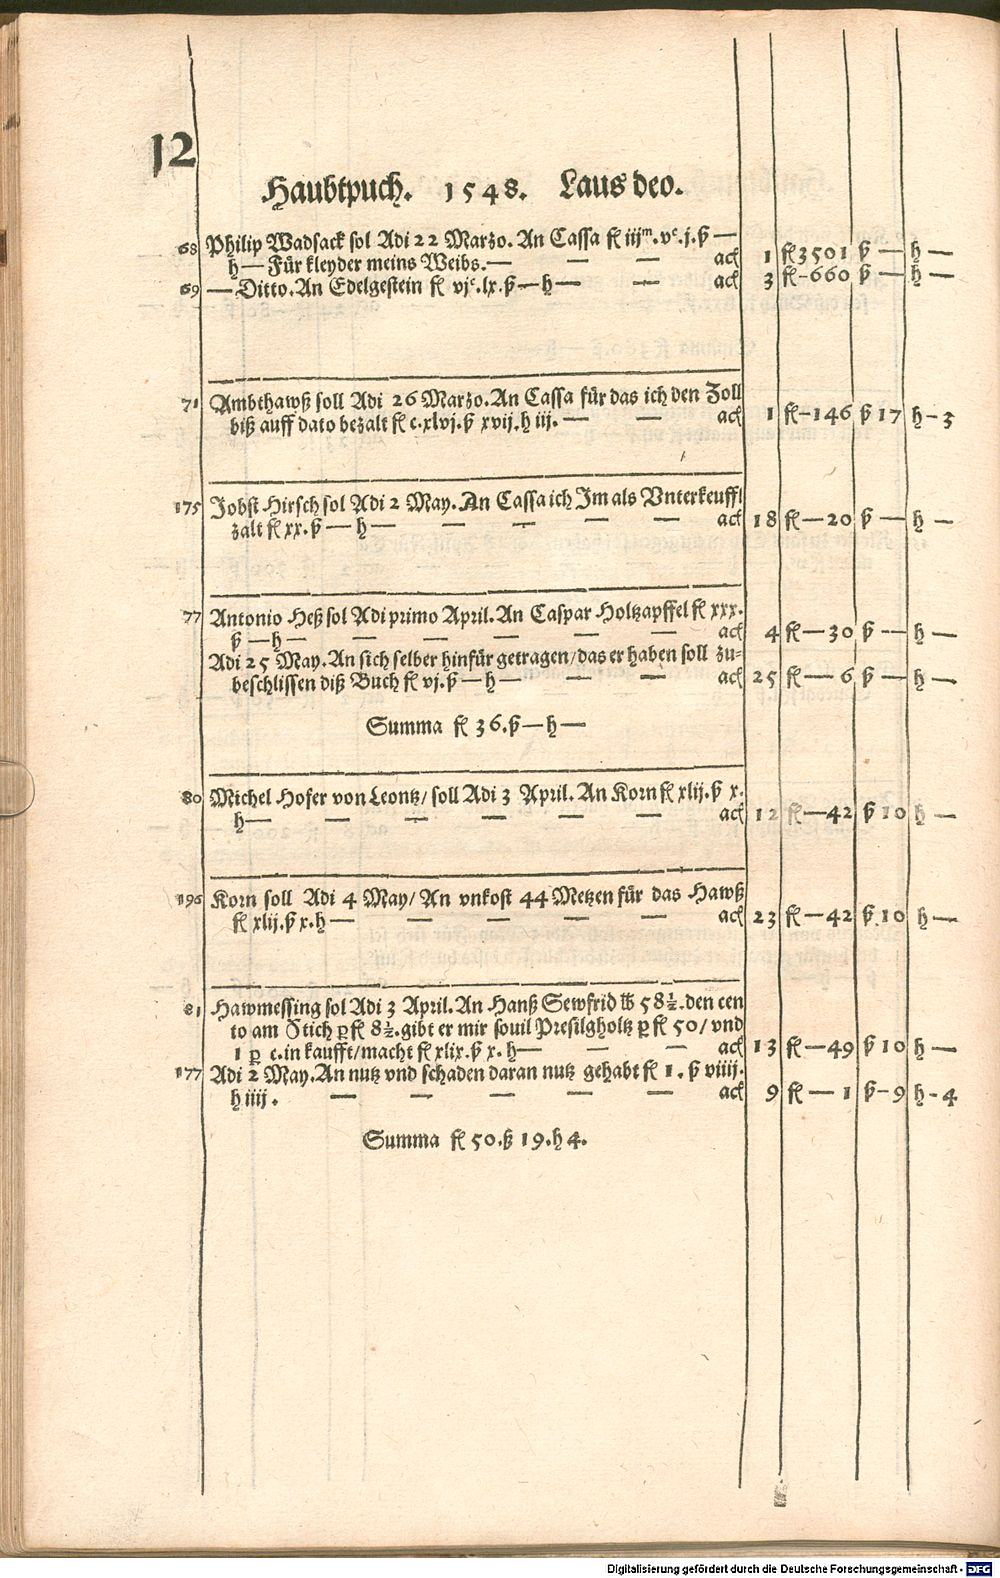 12
Haubtpuch. 1548. Laus deo.
68 Philip Wadsack sol Adi 22 Marzo. An Cassa fl iijᵐ.vᶜ.j.ß —
h— Für kleyder meins Weibs.— — — acł 1 fl 3501 ß — h —
69 — Ditto. An Edelgestein fl vjᶜ.lx.ß—h— — acł 3 fl-660 ß — h —
71 Ambthawß soll Adi 26 Marzo. An Cassa für das ich den Zoll
biß auff dato bezalt fl c.xlvj.ß xvij.h iij.— — acł 1 fl-146 ß 17 h-3
175 Jobst Hirsch sol Adi 2 May. An Cassa ich Im als Vnterkeuffl
zalt fl xx.ß—h— — — — — acł 18 fl—20 ß — h —
77 Antonio Heß sol Adi primo April. An Caspar Holtzapffel fl xxx.
ß—h— — — — — — acł 4 fl—30 ß — h —
Adi 25 May. An sich selber hinfür getragen/das er haben soll zu=
beschlissen diß Buch fl vj.ß—h— — — acł 25 fl— 6 ß — h —
Summa fl 36.ß—h—
80 Michel Hofer von Leontz/ soll Adi 3 April. An Korn fl xlij.ß x.
h— — — — — — acł 12 fl—42 ß 10 h —
196 Korn soll Adi 4 May/ An vnkost 44 Metzen für das Hawß
fl xlij.ß x.h— — — — — acł 23 fl—42 ß.10 h—
81 Hawmessing sol Adi 3 April. An Hanß Sewfrid ℔ 58½.den cen
to am Stich ꝑ fl 8½.gibt er mir souil Presilgholtz ꝑ fl 50/ vnd
1 ꝑ c.in kaufft/macht fl xlix.ß x.h— — — acł 13 fl—49 ß 10 h —
177 Adi 2 May. An nutz vnd schaden daran nutz gehabt fl 1. ß viiij.
h iiij. — — — — — acł 9 fl— 1 ß-9 h-4
Summa fl 50.ß 19.h 4.
Digitalisierung gefördert durch die Deutsche Forschungsgemeinschaft - DFG